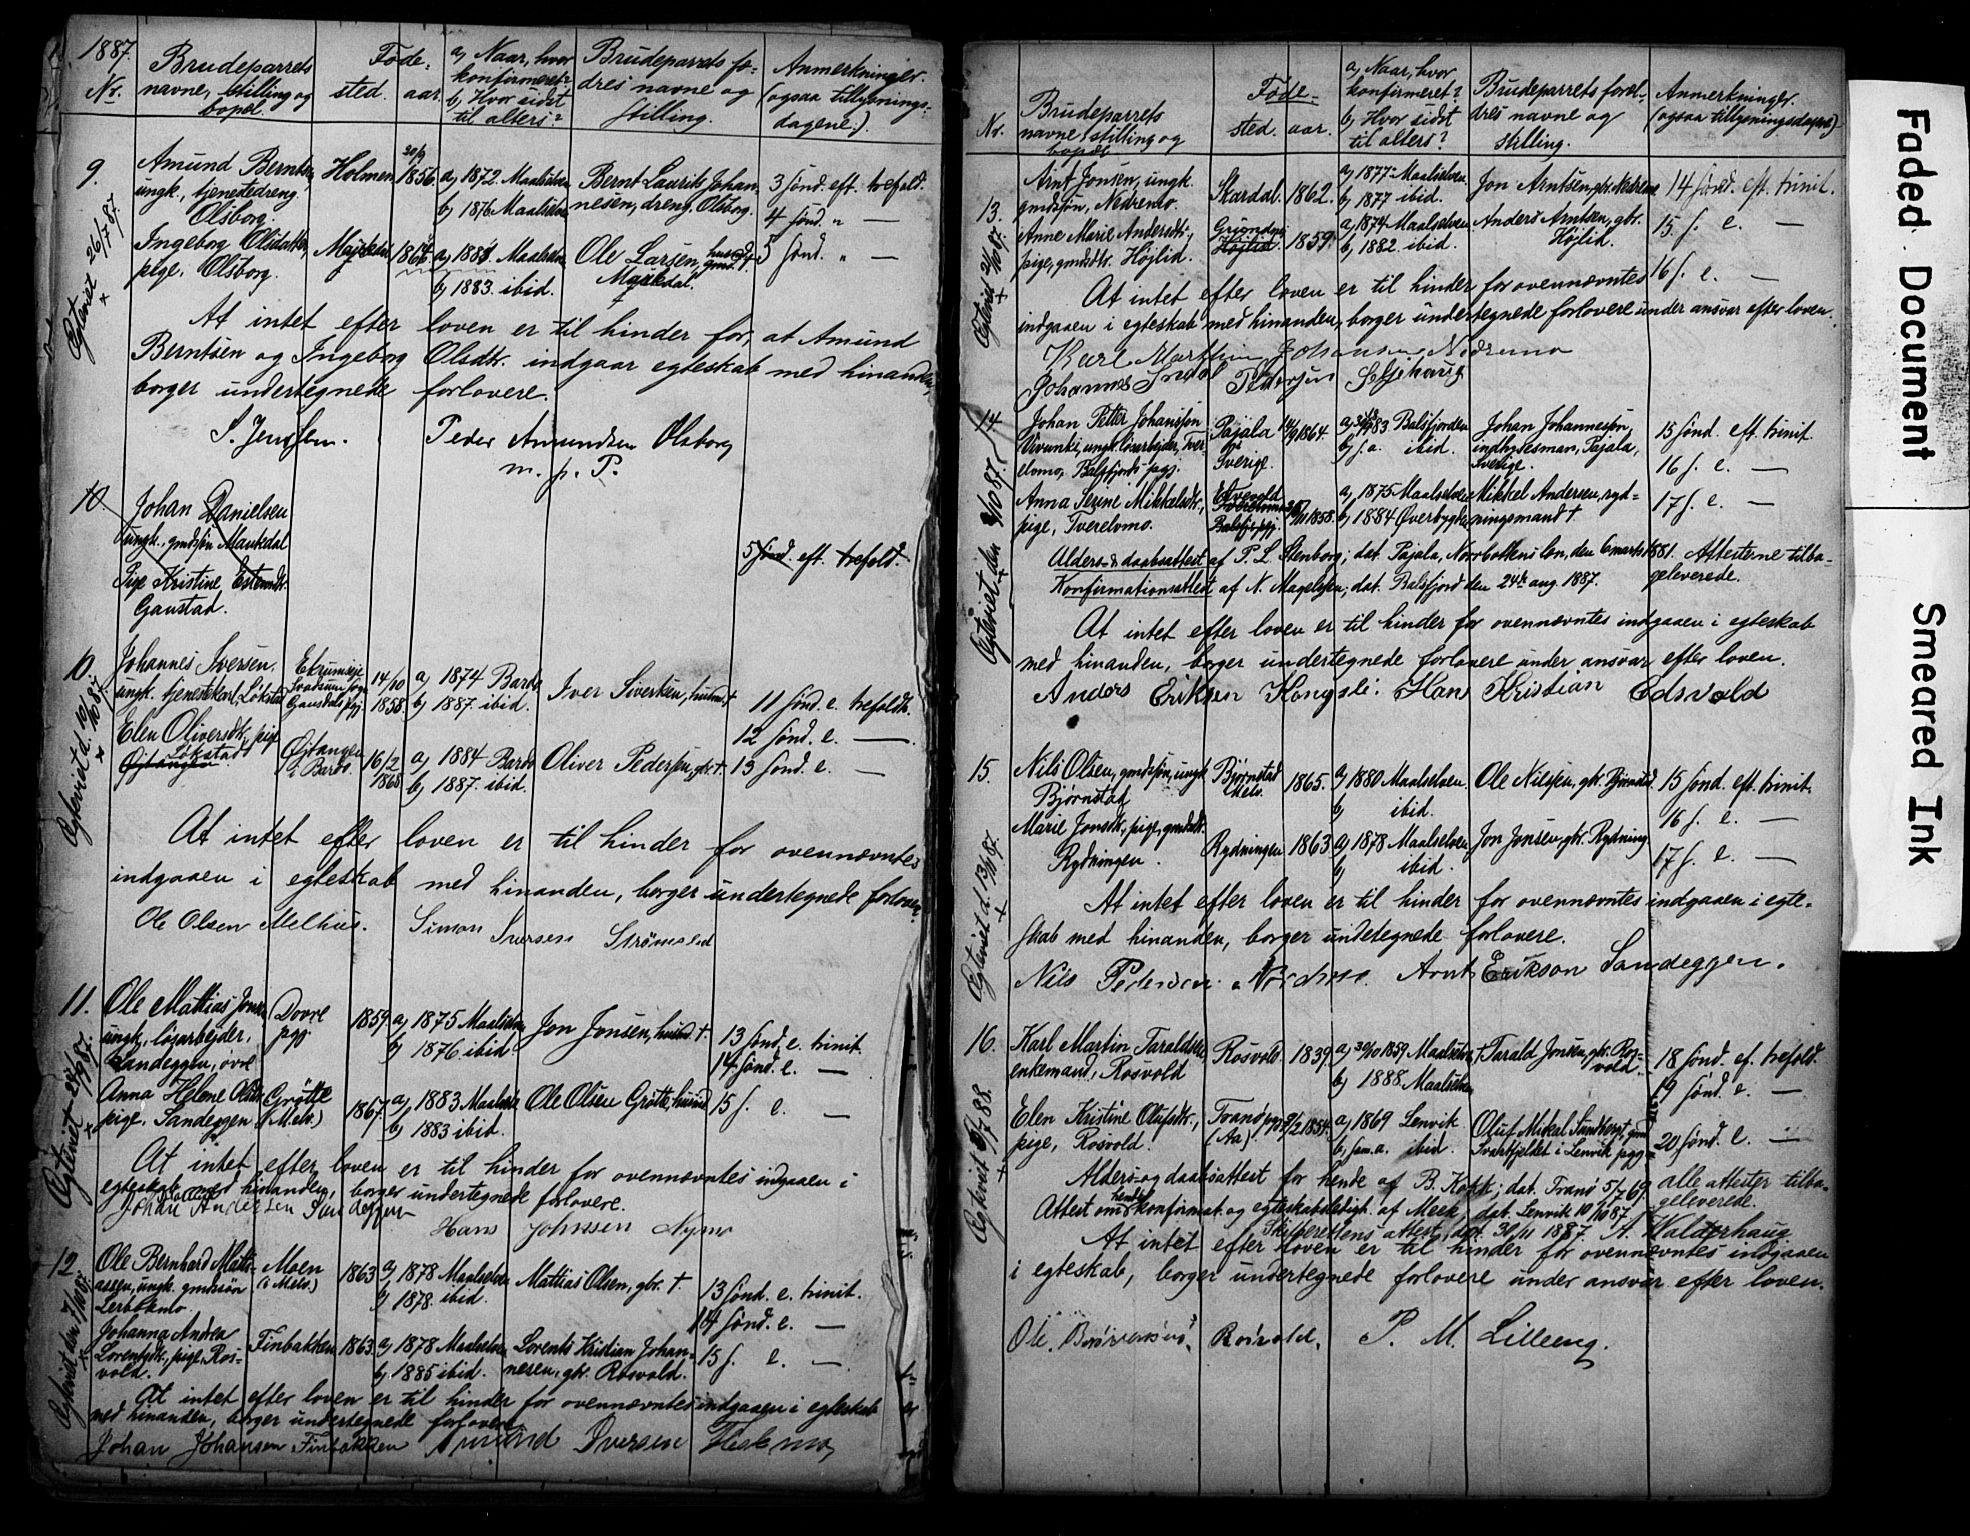 1887.
Nr.
Brudeparrets
navne, stilling og
bopæl.
Føde-
sted.
aar.
a) Naar, hvor
konfirmeret?
b) Hvor sidst
til alters?
Brudeparrets fo-
dres navne og
stilling.
Anmerkninger.
(ogsaa tillysnings-
dagene.)
9.
Ægteviet 26/7 87.
Amund Berntsen,
ungk., tjenestedreng
Olsborg.
Holmen
20/9
1856.
a) 1872. Maalselven
b) 1876 Maalselven
Bernt Laurik Johan-
nesen, dreng. Olsborg.
3 sønd. eft. trefold.
4 sønd. " —
Ingeborg Olsdatter,
pige, Olsborg.
a) 1881. Maalselven
b) 1883. ibid.
Ole Larsen,
Maukdal.
5 sønd. " —
At intet efter loven er til hinder for, at Amund
Berntsen og Ingeborg Olsdtr. indgaar egteskab med hinanden,
borger undertegnede forlovere.
S. Jenssen.
Peder Amundsen Olsborg
m. p. P.
10.
Johan Danielsen
ungk., gmdsøn Maukdal
Pige Kristine Estensdtr.
Gaustad.
5 sønd. eft. trefold.
10.
Ægteviet d. 10/10 87.
Johannes Iversen
ungk. tjenestekarl, Løkstad
14/10
1858.
a) 1874 Bardo
b) 1887. ibid.
Iver Sivertsen, husmd †
11 sønd. e. trefoldh.
12 sønd. e. —
Elen Oliversdtr., pige
Løkstad
Øjtangen
Øjtangen
i Bardo.
16/2
1868
a) 1884 Bardo
b) 1887. ibid.
Oliver Pedersen, gbr. †
13 sønd. e. —
At intet efter loven er til hinder for ovennævntes
indgaaen i egteskab med hinanden, borger undertegnede forlovere.
Ole Olsen Melhus. Simon Iversen Strømslid
11.
Ole Mattias Jonsen
ungk., løsarbejder,
Sandeggen, øvre
Dovre
pgj
1859
a) 1875 Maalselven
b) 1876 ibid.
Jon Jonsen, husmd †.
13 sønd. e. trinit.
14 sønd. e. —
Anna Helene Olsdtr.
pige, Sandeggen
Grøtte
(i Melv.)
1867.
a) 1883 Maalselv
b) 1883 ibid.
Ole Olsen Grøtte, husmd
15 s. e. —
At intet efter loven er til hinder for ovennævntes indgaaen i
egteskab med hinanden, borger undertegnede forlovere.
Johan Andersen Sandeggen
Hans Johnssen Nymo
12
Ægteviet den 7/10 87.
Ole Bernhard Matti-
assen, ungk. gmdssøn
Moen
(i Melv.)
1863
a) 1878 Maalselven
b) 1878. ibid.
Mattias Olsen, gbr. †
13 sønd. e. trinit.
14 sønd. e. —
Johanna Andrea
Lorentsdtr., pige, Ros-
vold.
Finbakken
1863.
a) 1878 Maalselven
b) 1885 ibid.
Lorents Kristian Johan-
nesen, gbr. Rosvold.
15 s. e. —
At intet efter loven er til hinder for ovennævntes indgaaen i egteskab
med hinanden, borger undertegnede forlovere
Johan Johansen Finbakken Amund Iversen Fleskmo,
Nr.
Brudeparrets
navne, stilling og
bopæl
Føde-
sted. aar.
a) Naar, hvor
konfirmeret?
b) Hvor sidst
til alters?
Brudeparrets foræl-
dres navne og
stilling.
Anmerkninger.
(ogsaa tillysningsdagene)
13.
Arnt Jonsen, ungk.
gmdsøn, Nedremo.
Stardal.
1862.
a) 1877 Maalselven
b) 1877 ibid.
Jon Arntsen, gbr. Nedremo
14 sønd. eft. trinit.
Anne Marie Andersdtr.,
pige, gmdsdtr. Højlid.
Højlid.
1859.
a) 1874 Maalselven
b) 1882. ibid.
Anders Arntsen, gbr.
Højlid.
15 s. e. —
16 s. e. —
At intet efter loven er til hinder for ovennævntes
indgaaen i egteskab med hinanden, borger undertegnede forlovere under ansvar efter loven.
Karl Marthin Johansen Nedremo
Johannes Pedersen
14
Johan Petter Johansson
ungk. løsarbejder, Tver-
elvmo, Balsfjords pgj.
Pajala
i
Sverige.
14/9 1864.
1883. Balsfjorden
b) s. a. ibid.
Johan Johannesson,
indhysesman, Pajala,
Sverige.
15 sønd. eft. trinit.
16 s. e. —
Anna Serine Mikkelsdtr.,
pige, Tverelvmo.
Balsfj. pgj.
1858.
a) 1875 Maalselven
b) 1884 Øverbygden
Mikkel Andersen, ryd-
ningsmand †
17 s. e. —
Alders- & daabsattest af P. L. Stenborg; dat. Pajala, Norrbottens län, den 6 marts 1881. Attesterne tilba-
geleverede.
Konfirmationsattest af N. Magelssen; dat. Balsfjord den 24de aug. 1887.
At intet efter loven er til hinder for ovennævntes indgaaen i egteskab
med hinanden, borger undertegnede forlovere under ansvar efter loven.
Anders Eriksen Kongsli. Hans Kristian Edsvold
15.
Ægteviet d. 13/10 87.
Nils Olsen, gmdssøn, ungk
Bjørnstad
Bjørnstad
Melv.
1865.
a) 1880 Maalselven
b) ibid.
Ole Nilssen, gbr. Bjørnstad.
15 sønd. eft. trinit.
16 s. e. —
Marie Jonsdtr., pige, gmdsdtr.
Rydningen.
Rydningen
1863
a) 1878 Maalselven
b) ibid.
Jon Jonsen gbr. Rydning
17 s. e. —
At intet efter loven er til hinder for ovennævntes indgaaen i egte-
skab med hinanden, borger undetegnede forlovere.
Nils Pedersen Nordmo. Arnt Erikson Sandeggen.
16.
Karl Martin Taraldsen
enkemand, Rosvold
Rosvold
1839.
a) 30/10 1859 Maalselven
b) 1888 Maalselven
† Tarald Jonsen, gbr. Ros-
vold.
18 sønd. ef. trefold.
19 sønd. e. —
Elen Kristine Olufsdtr.,
pige, Rosvold.
Tranø pgj
(Aa)
1854.
a) 1869 Lenvik
b) sam. a. ibid.
Oluf Mikal Sundbergt,
i Lenvik pgj
20 sønd. e. —
Alders- og daabsattest for hende af B. Kopk; dat. Tranø 5/7 69. alle attester tilba-
geleverede.
Attest om hendes konfirmat. og egteskabsledigh. af Meek, dat. Lenvik 10/10 87.
Skifterettens attest, dat. 30/11 1887. A. Walderhaug
At intet efter loven er til hinder for ovennævntes indgaaen
i egteskab, borger undertegnede forlovere under ansvar efter loven.
Ole Rosvold. P. M. Lilleeng.
Faded Document
Smeared Ink